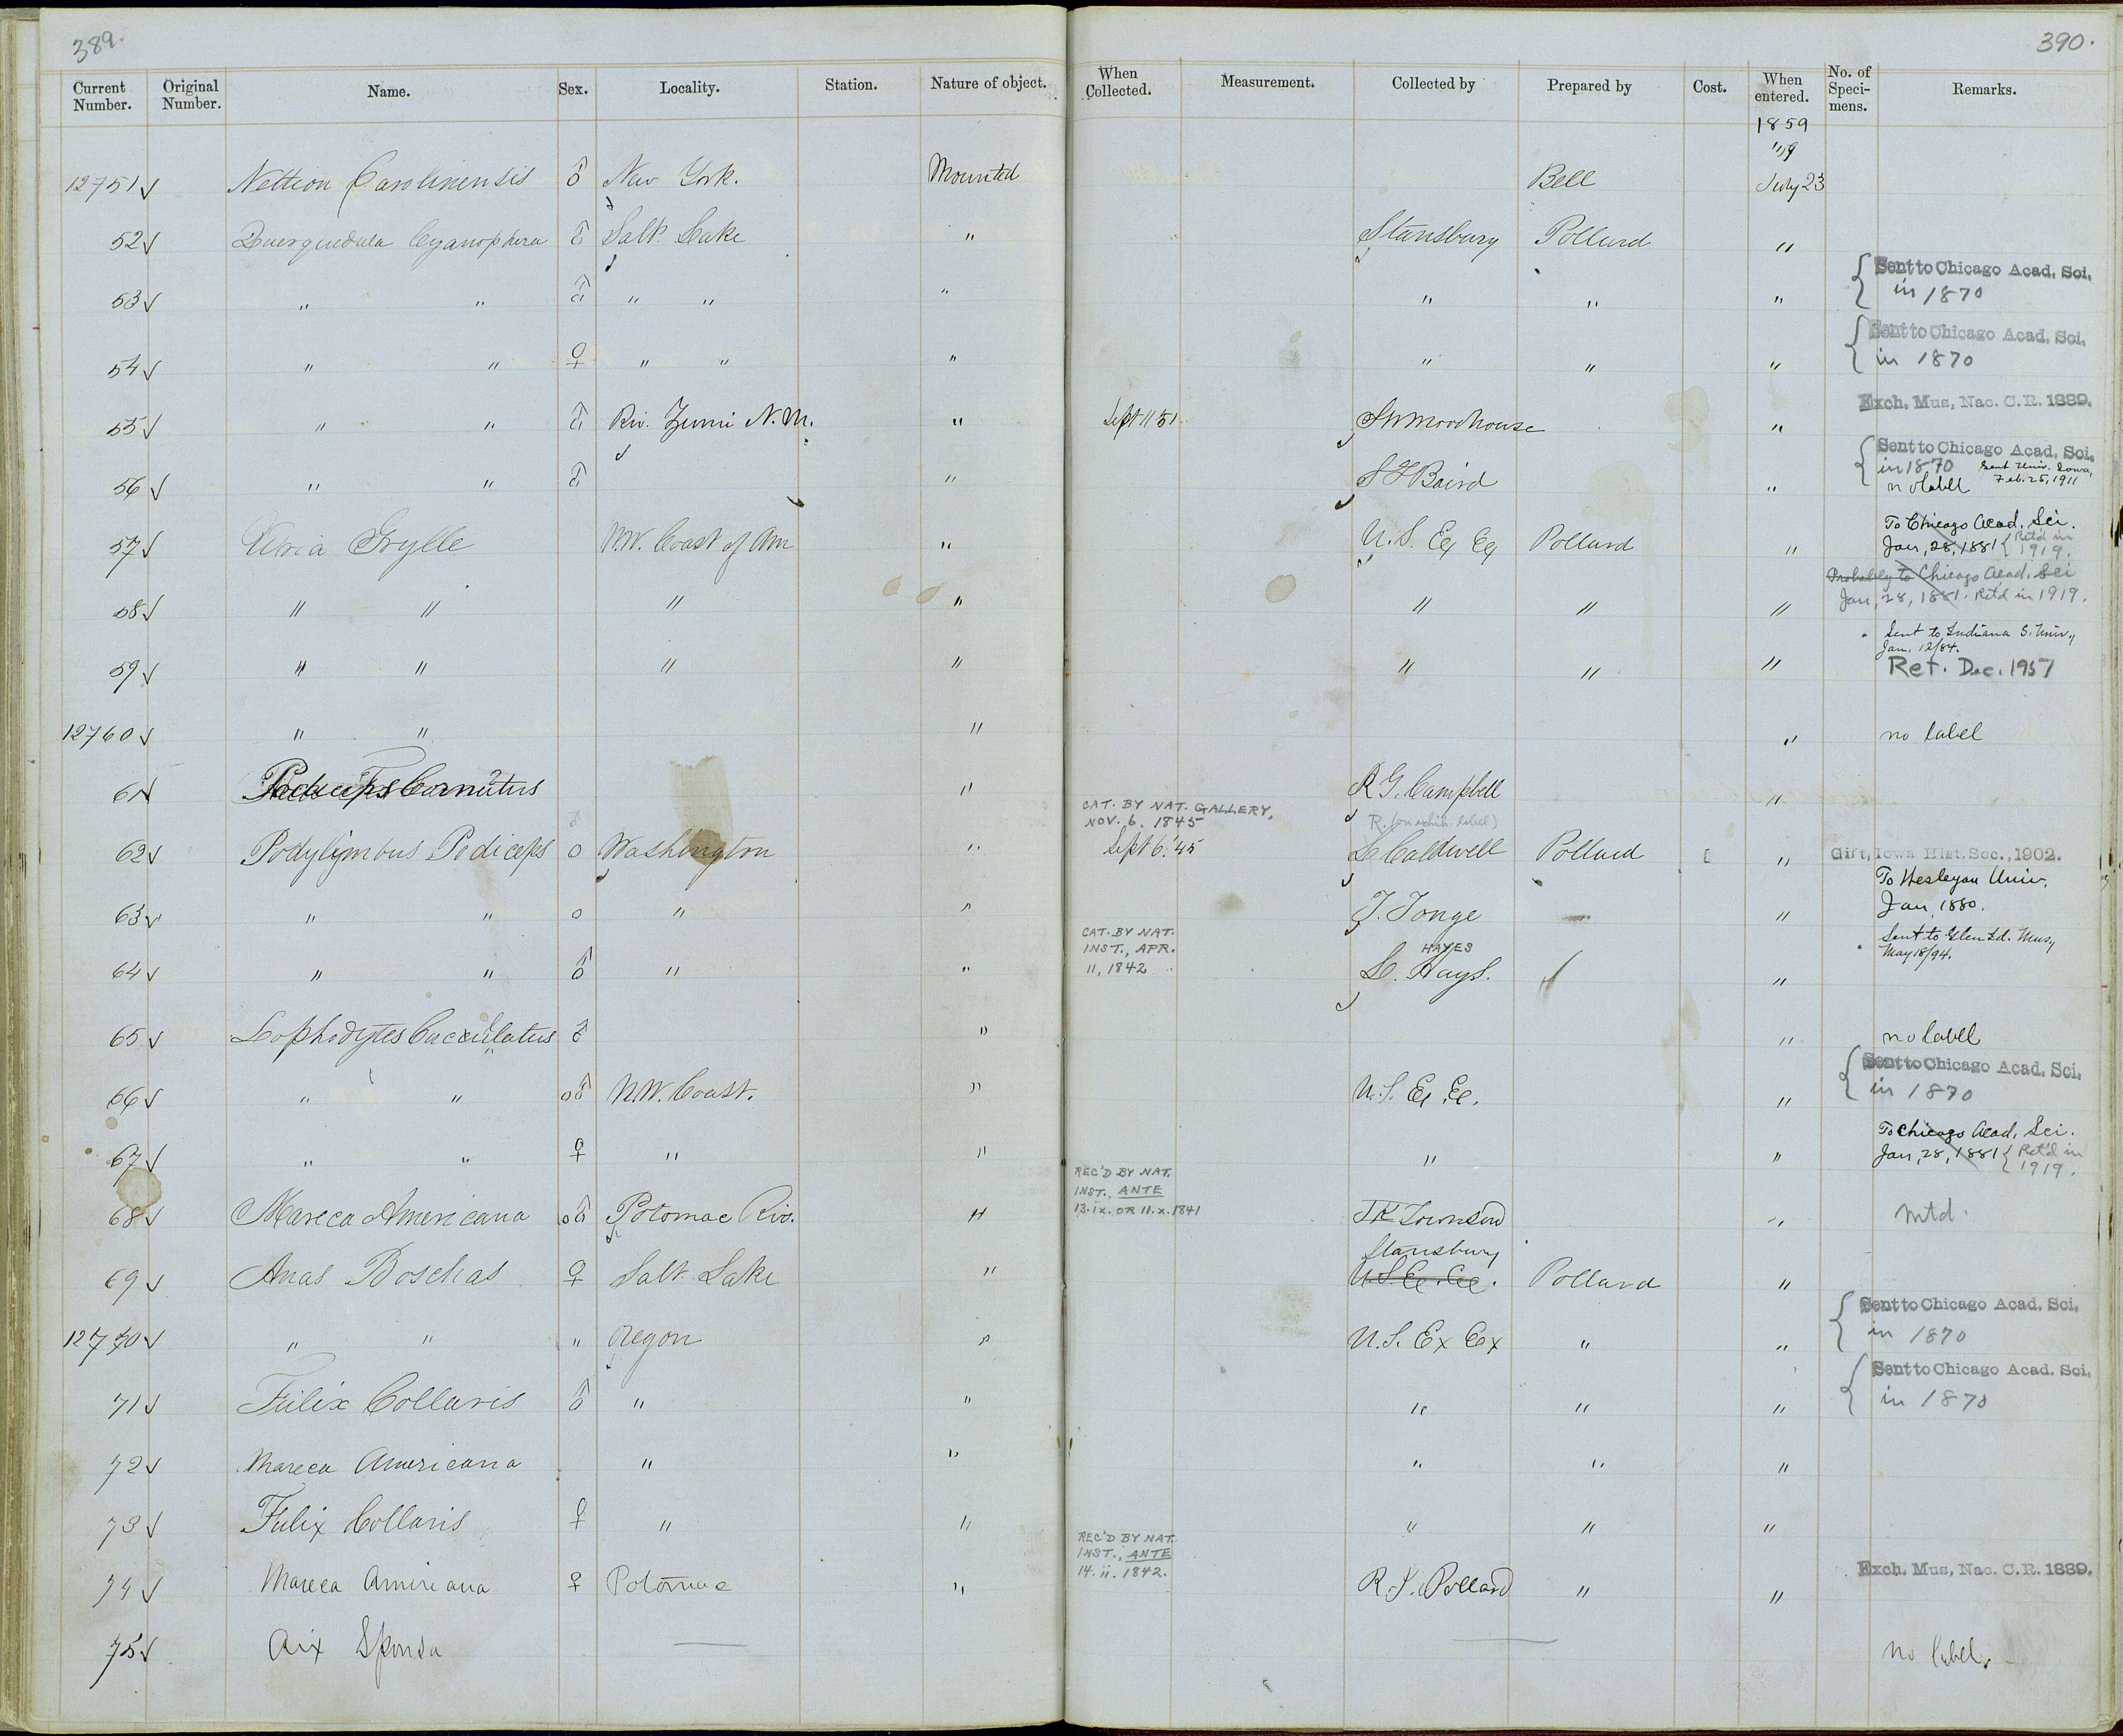 389.
390.
Current Number. Original Number. Name. Sex. Locality. Station. Nature of object. When Collected. Measurement. Collected by Prepared by Cost. When entered. No. of Speci-mens. Remarks.
1859
12751 ✓ Nettion Carolinensis ♂ New York. Mounted Bell July 23
52 ✓ Querquedula Cyanoptera ♂ Salt Lake " Stansbury Pollard "
53 ✓ " " ♂ " " " " " " { Sent to Chicago Acad. Sci.
in 1870
54 ✓ " " ♀ " " " " " " { Sent to Chicago Acad. Sci.
in 1870
55 ✓ " " ♂ Riv. Zuni N.M. " Sept 11 51 S W Woodhouse " Exch. Mus. Nac. C.R. 1889.
56 ✓ " " ♂ " S F Baird " { Sent to Chicago Acad. Sci.
in 1870 Sent Univ. Iowa,
Feb. 25, 1911
no label
57 ✓ Uria Grylle N.W. Coast of Am " U. S. Ex Ex Pollard " To Chicago Acad. Sci.
Jan, 28, 1881 { Ret'd in
1919.
58 ✓ " " " " " " " Probably to Chicago Acad. Sci
Jan, 28, 1881. Ret'd in 1919.
59 ✓ " " " " " " " Sent to Indiana S. Univ.,
Jan. 12/84.
Ret. Dec. 1957
12760 ✓ " " " " no label
61 ✓ Podiceps Cornutus " R G. Campbell "
62 ✓ Podylymbus Podiceps ♂ Washington " CAT. BY NAT. GALLERY,
NOV. 6. 1845
Sept 6. '45 R. (on exhib. label)
L Caldwell Pollard " Gift, Iowa Hist. Soc., 1902.
63 ✓ " " o " " T. Tonge — " To Wesleyan Univ.
Jan, 1880.
64 ✓ " " ♂ " " CAT. BY NAT.
INST., APR.
11, 1842 HAYES
L. Hays. " Sent to Glen Id. Mus.,
May 18/94.
65 ✓ Lophodytes Cucullatus ♂ " " no label
66 ✓ " " ♂ N.W. Coast. " U. S. Ex. Ex. " { Sent to Chicago Acad. Sci.
in 1870
67 ✓ " " ♀ " " " " To Chicago Acad. Sci.
Jan, 28, 1881 { Ret'd in
1919.
68 ✓ Mareca Americana ♂ Potomac Riv. " REC'D BY NAT.
INST., ANTE
13. ix. OR 11. x. 1841 J K Townsend " Mtd.
69 ✓ Anas Boschas ♀ Salt Lake " Stansbury
U. S. Ex. Ex. Pollard "
12770 ✓ " " " Oregon " U. S. Ex Ex " " { Sent to Chicago Acad. Sci.
in 1870
71 ✓ Fulix Collaris ♂ " " " " " { Sent to Chicago Acad. Sci.
in 1870
72 ✓ Mareca Americana " " " " "
73 ✓ Fulix Collaris ♀ " " " " "
74 ✓ Mareca Americana ♀ Potomac " REC'D BY NAT.
INST., ANTE
14. ii. 1842. R. S. Pollard " " Exch. Mus. Nac. C.R. 1889.
75 ✓ Aix Sponsa — — no label.